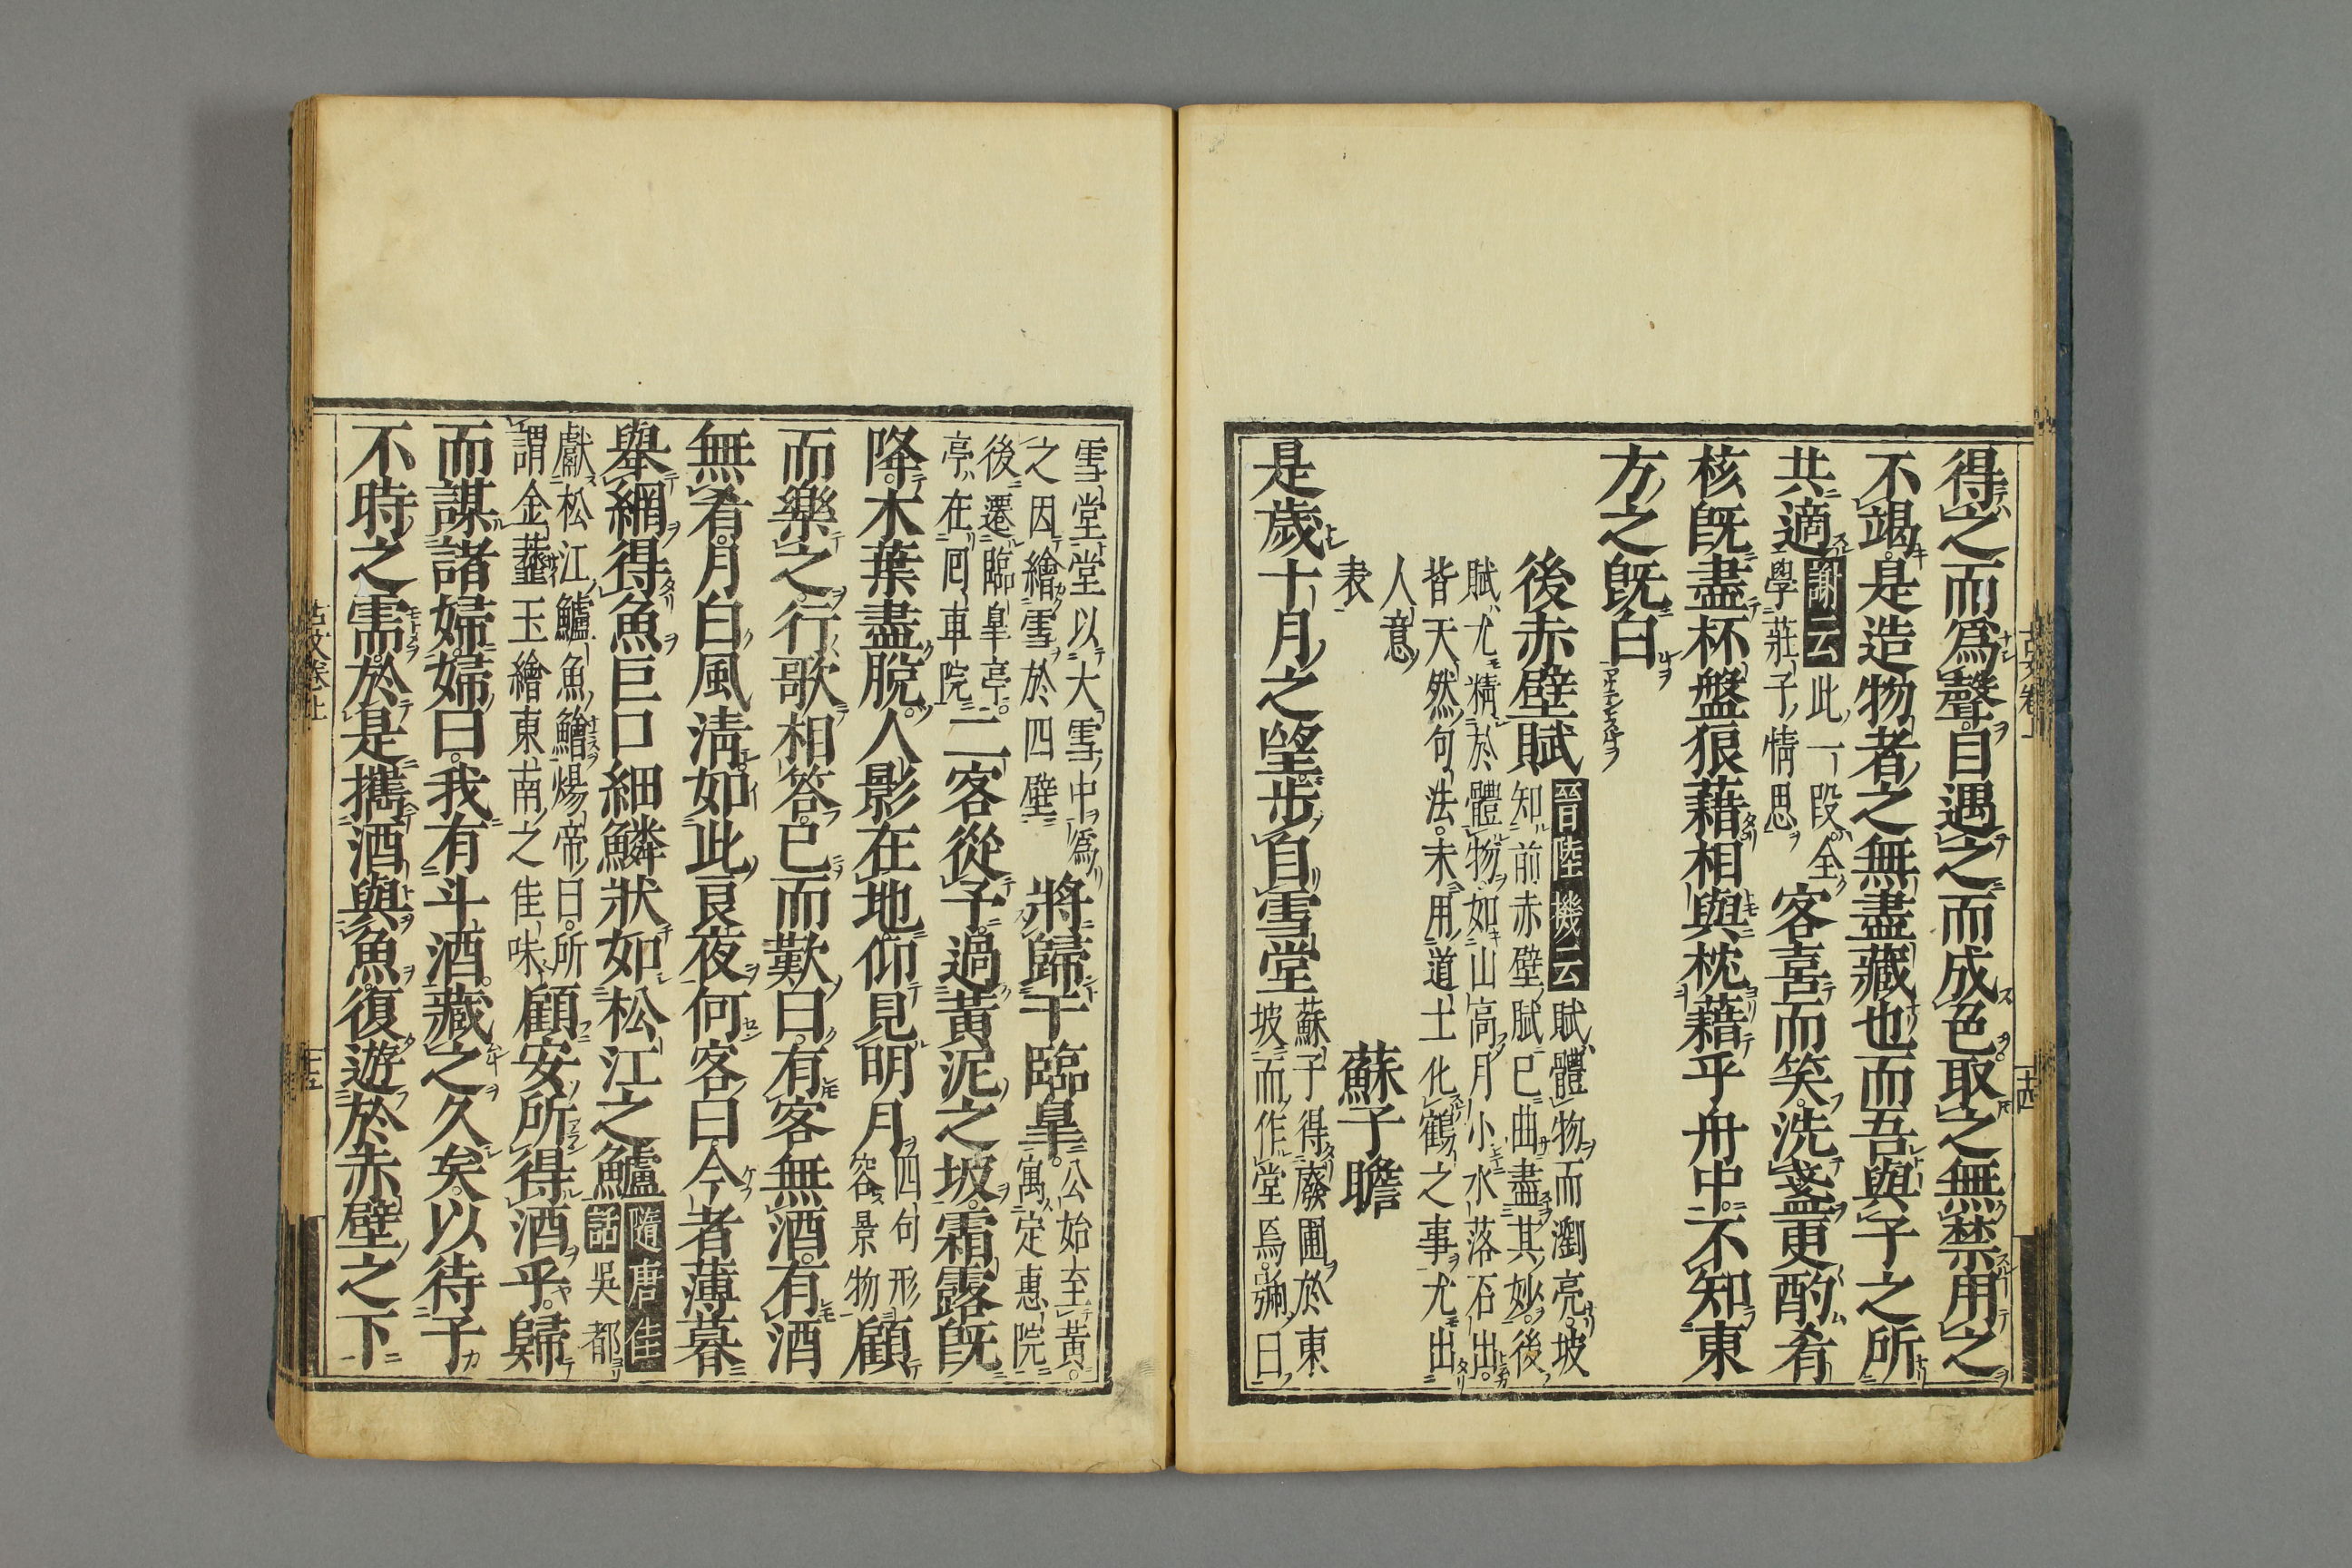 得之而爲聲目遇之而成色取之無禁用之
不竭是造物者之無盡藏也而吾與子之所
共適
謝云此一段全
學莊子情思
客喜而笑洗盞更酌肴
核既盡杯盤狼藉相與枕藉乎舟中不知東
方之既白
後赤壁賦
晉陸機云賦體物而瀏亮坡
知前赤壁賦已曲盡其妙後
賦尤精於體物如山高月小水落石出
皆天然句法未用道士化鶴之事尤出
人意
表
蘇子瞻
是歲十月之望步自雪堂
蘇子得廢圃於東
坡而作堂焉號曰
雪堂堂以大雪中爲
之因繪雪於四壁
將歸于臨皐
公始至黃
寓定惠院
後遷臨皐亭
亭在囘車院
二客從予過黃泥之坂霜露既
降木葉盡脫人影在地仰見明月
四句形
容景物
顧
而樂之行歌相答已而歎曰有客無酒有酒
無肴月白風淸如此良夜何客曰今者薄暮
舉網得魚巨口細鱗狀如松江之鱸
隨唐佳
話吳都
獻松江鱸魚鱠煬帝曰所
謂金虀玉繪東南之佳味
顧安所得酒乎歸
而謀諸婦婦曰我有斗酒藏之久矣以待子
不時之需於是攜酒與魚復遊於赤壁之下